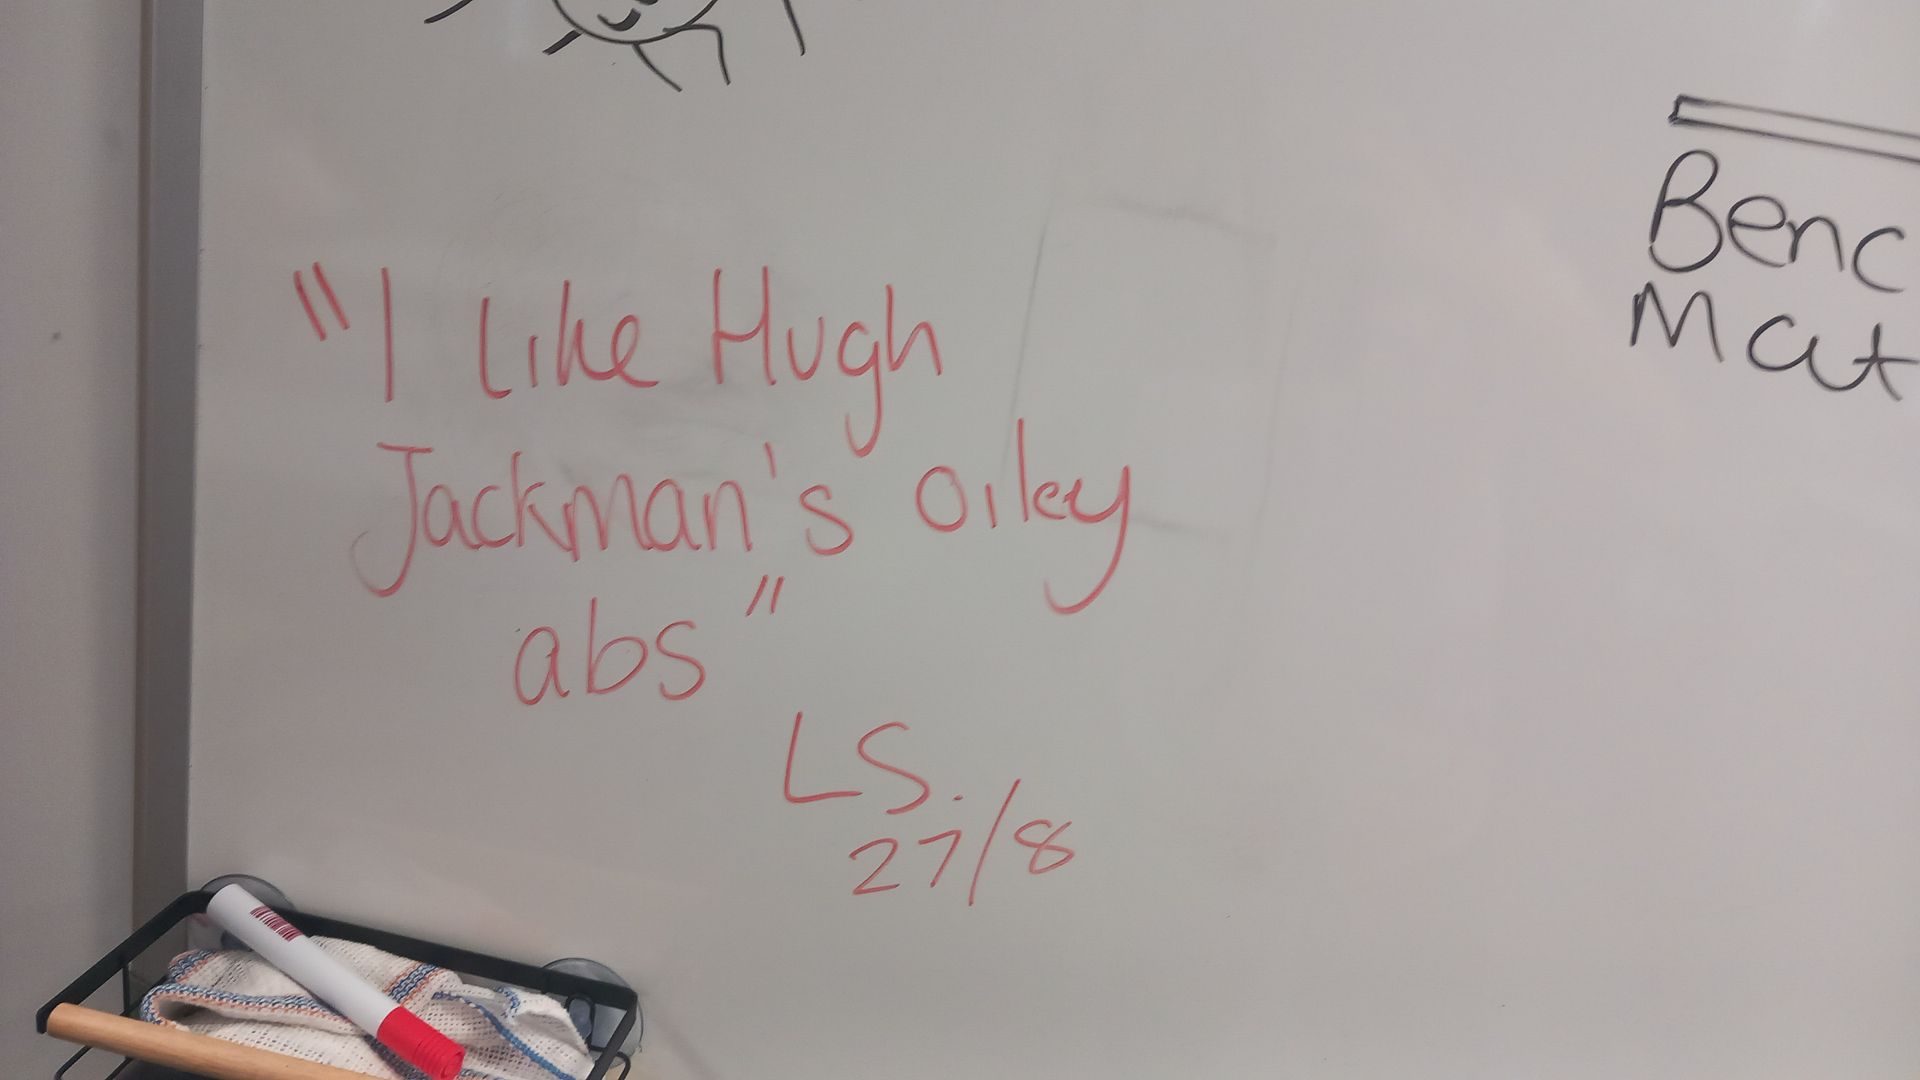 "I like Hugh
Jackman's oiley
abs"
LS.
27/8
Benc
Mat